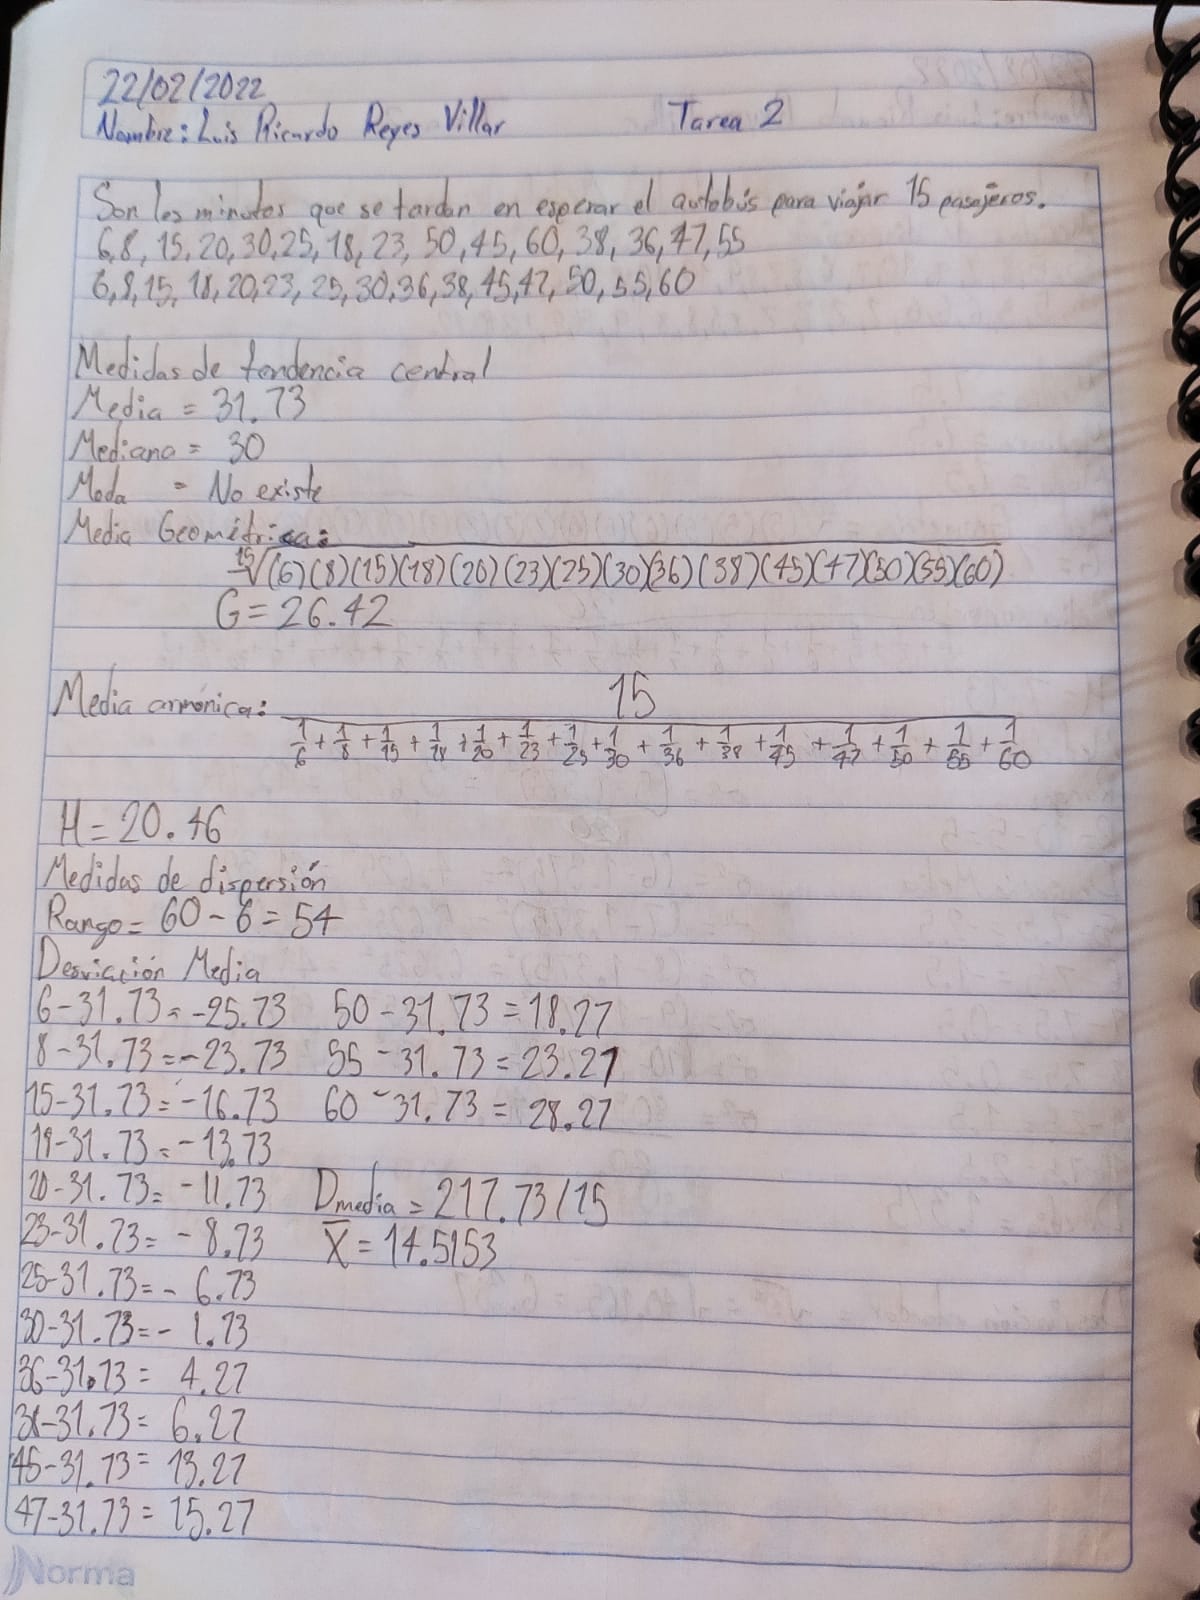 22/02/2022
Nombre: Luis Ricardo Reyes Villar Tarea 2
Son los minutos que se tardan en esperar el autobús para viajar 15 pasajeros.
6,8, 15, 20, 30, 25, 18, 23, 50, 45, 60, 38, 36, 47, 55
6, 8, 15, 18, 20, 23, 25, 30, 36, 38, 45, 47, 50, 55, 60
Medidas de tendencia central
Media = 31.73
Mediana = 30
Moda = No existe
Media Geométrica:
15√(6)(8)(15)(18)(20)(23)(25)(30)(36)(38)(45)(47)(50)(55)(60)
G = 26.42
Media armónica: 15
1/6 + 1/8 + 1/15 + 1/18 + 1/20 + 1/23 + 1/25 + 1/30 + 1/36 + 1/38 + 1/45 + 1/47 + 1/50 + 1/55 + 1/60
H = 20.46
Medidas de dispersión
Rango = 60 - 6 = 54
Desviación Media
6-31.73 = -25.73 50-31.73 = 18.27
8-31.73 = -23.73 55-31.73 = 23.27
15-31.73 = -16.73 60-31.73 = 28.27
18-31.73 = -13.73
20-31.73 = -11.73 Dmedia = 217.73/15
23-31.73 = -8.73 X̅ = 14.5153
25-31.73 = -6.73
30-31.73 = -1.73
36-31.73 = 4.27
38-31.73 = 6.27
45-31.73 = 13.27
47-31.73 = 15.27
Norma